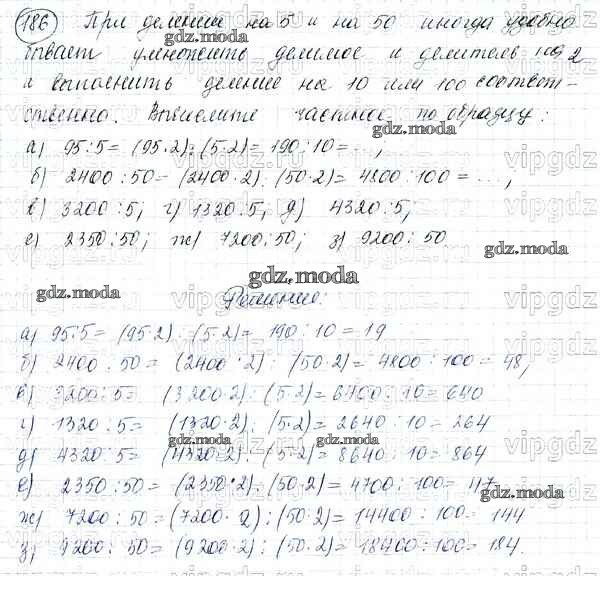 186 При делении на 5 и на 50 иногда удобно
бывает умножить делимое и делитель на 2
и выполнить деление на 10 или 100 соответ-
ственно. Вычислите частное по образцу:
gdz.moda
а) 95:5=(95·2):(5·2)=190:10=...,
б) 2400:50=(2400·2):(50·2)=4800:100=...,
в) 3200:5; г) 1320:5; д) 4320:5;
е) 2350:50; ж) 7200:50; з) 9200:50
gdz.moda
gdz.moda
gdz.moda
gdz.moda
Решение:
а) 95:5=(95·2):(5·2)=190:10=19
б) 2400:50=(2400·2):(50·2)=4800:100=48,
в) 3200:5=(3200·2):(5·2)=6400:10=640
г) 1320:5=(1320·2):(5·2)=2640:10=264
gdz.moda
gdz.moda
д) 4320:5=(4320·2):(5·2)=8640:10=864
е) 2350:50=(2350·2):(50·2)=4700:100=47
gdz.moda
ж) 7200:50=(7200·2):(50·2)=14400:100=144
з) 9200:50=(9200·2):(50·2)=18400:100=184.
gdz.moda
gdz.moda
vipgdz